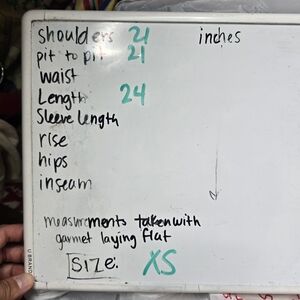 shoulders 21 inches
pit to pit 21
waist
Length 24
Sleeve Length
rise
hips
inseam
measurements taken with
garmet laying flat
SIZE: XS
U BRANDS